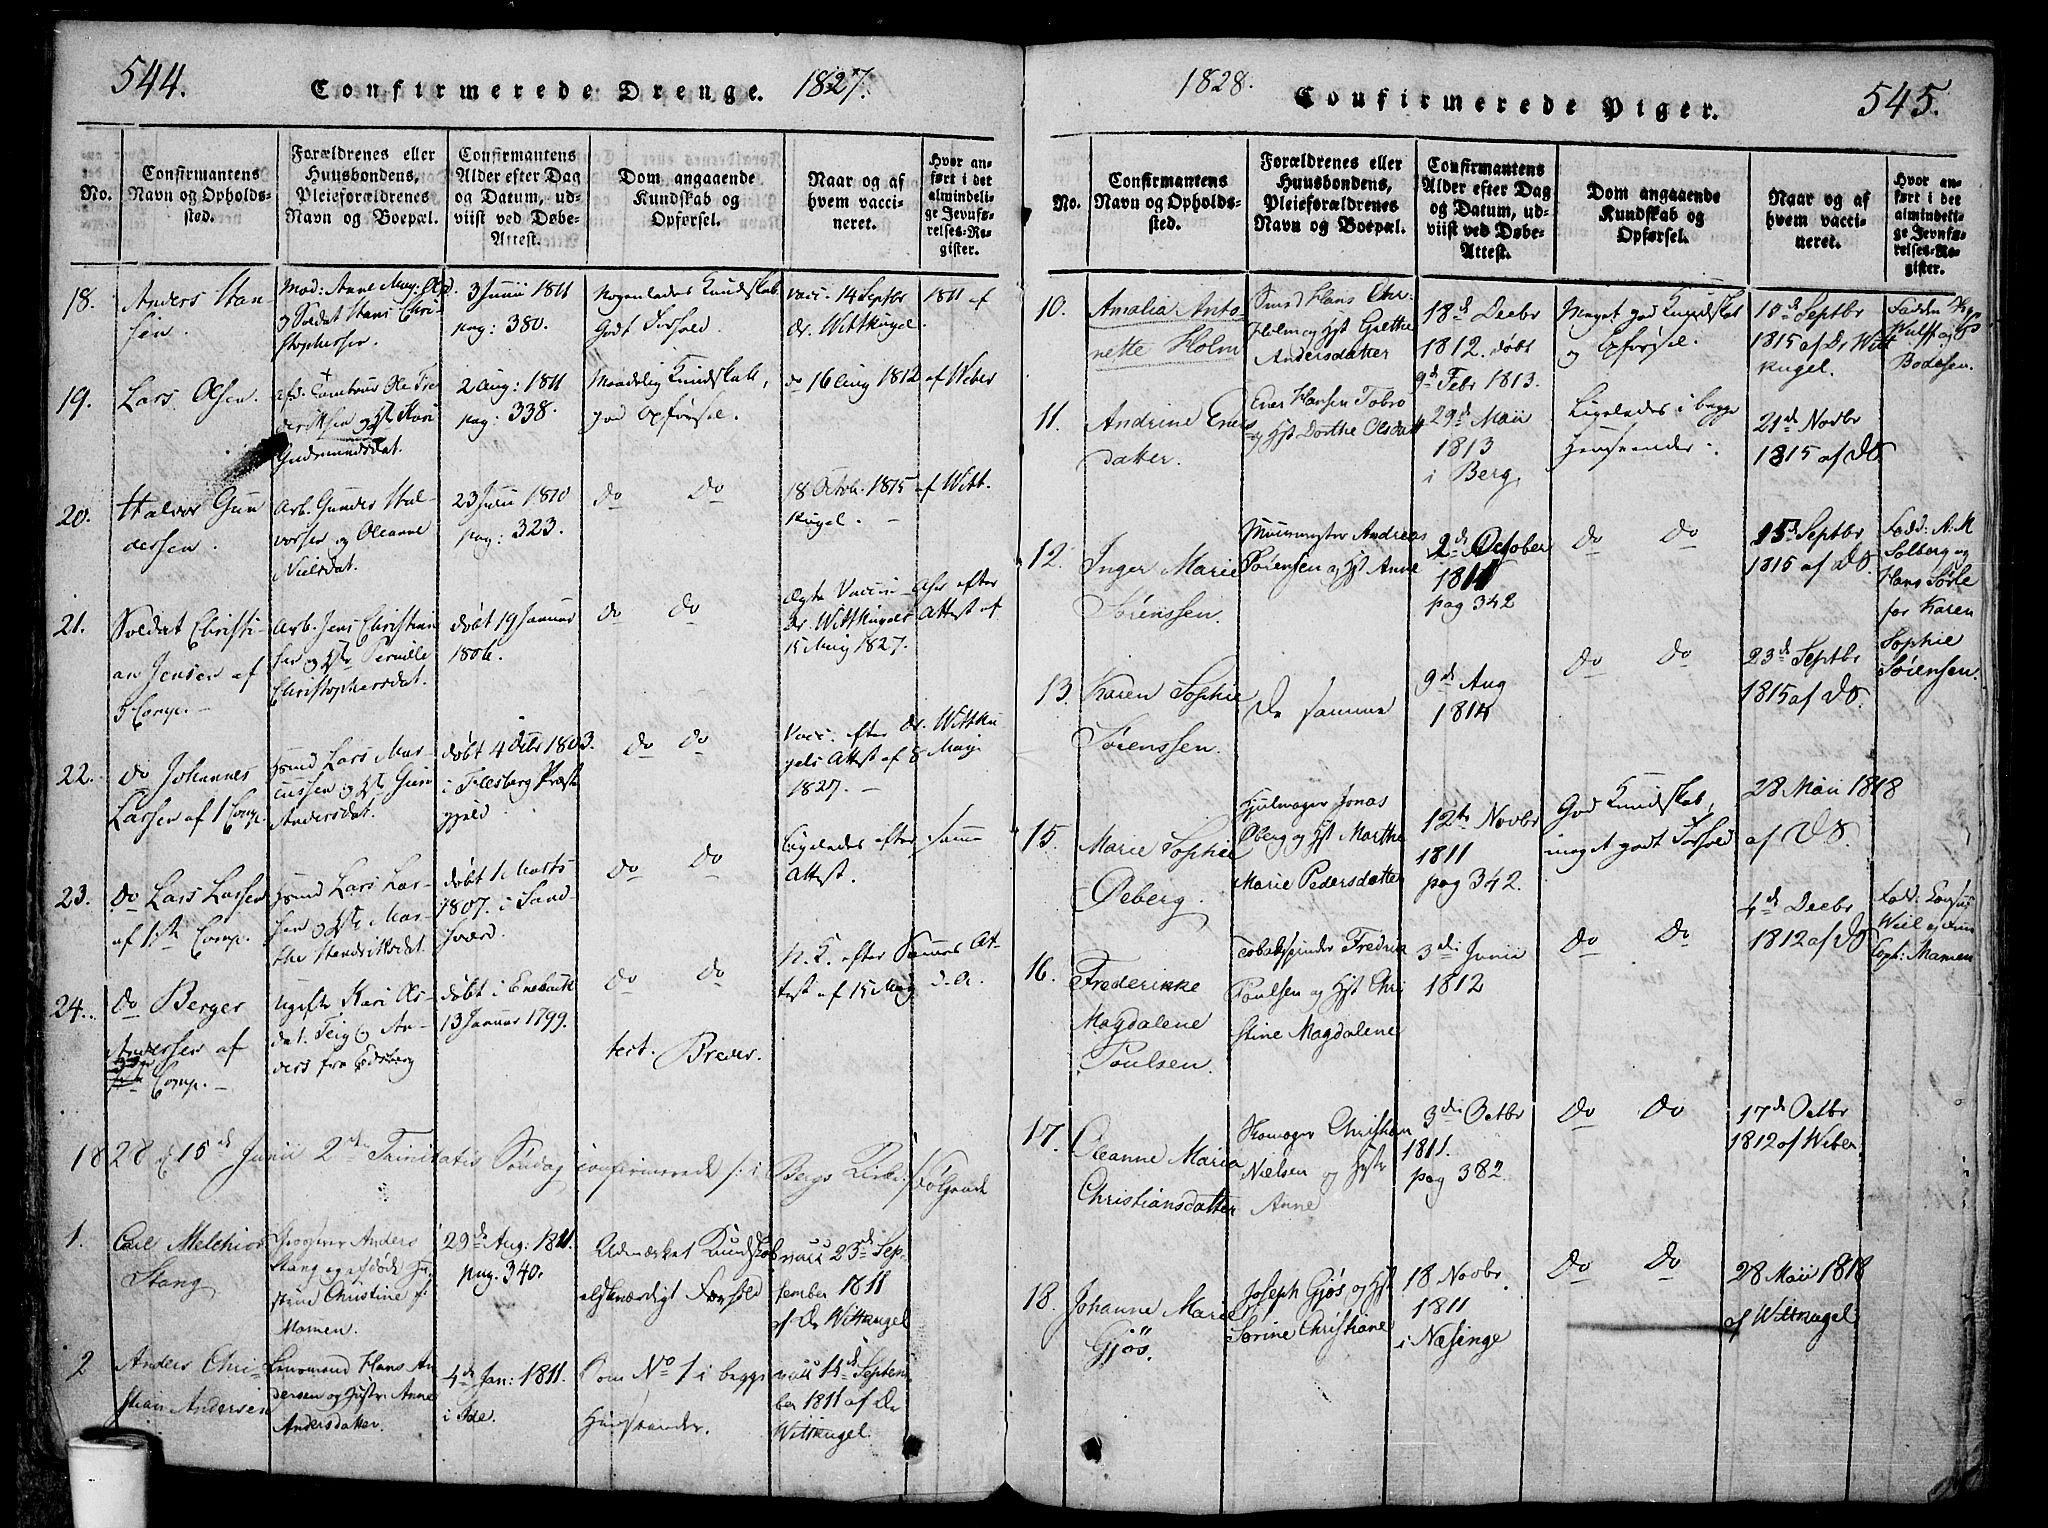 544.
Confirmerede Drenge. 1827.
No.
Confirmantens
Navn og Opholds-
sted.
Forældrenes eller
Huusbondens,
Pleieforældrenes
Navn og Boepæl.
Confirmantens
Alder efter Dag
og Datum, ud-
viist ved Døbe-
Attest.
Dom angaaende
Kundskab og
Opførsel.
Naar og af
hvem vacci-
neret.
Hvor an-
ført i det
almindeli-
ge Jevnfø-
relses-Re-
gister.
18.
Anders Han-
sen
Mod: Anne
Soldat Hans Chri-
stophersen.
3 Junii 1811
pag: 380.
Nogenledes Kundskab
Godt Forhold.
vacc. 14 Septbr 1811 af
Dr. Wittkugel.
19.
Lars Olsen.
Ole Fre-
deriksen og H. Kari
Gudmundsdat.
2 Aug: 1811
pag: 338.
Maadelig Kundskab,
god Opførsel.
do 16 Aug 1812 af Weber
20.
Halvor Gun
dersen.
Arb. Gunder Hal-
vorsen og Oleanne
Nielsdat.
23 Junii 1810
pag: 323.
do do
18 Octob. 1815 af Witt.
kugel.
21.
Soldat Christi-
an Jensen af
5 Comp.
Arb. Jens Christian
sen og H. Pernille
Christophersdat.
døbt 19 Januar
1806.
do do
Dr. Wittkugels Attest af
15 May 1827.
22.
do Johannes
Larssen af 1 Comp.
Huusmd Lars Mar-
cussen og H. Guri
Andersdat.
døbt 4 1803.
i Idesberg Præste
gjeld.
do do
Vacc. efter Dr. Wittku
gels Attest af 8 May
1827.
23.
do Lars Larsen
af 1ste Comp.
Huusmd Lars Lar-
sen og H. Mar-
the Hendriksdat.
døbt 1 Marts
1807. i Sand-
sværd.
do do
Ligeledes efter samme
Attest.
24.
do Berger
Andersen af
Comp.
ugifte Kari Ols-
dat. Teig og An-
ders fra Edsberg
døbt i Enebak
13 Januar 1799.
do do
N. K. efter Sammes At-
test af 15 May d. A.
test. Breder.
1828 d. 15de Junii 2den Trinitatis Søndag confirmerede /: i Bergs Kirke :/ Følgende
1.
Carl Melchior
Stang
Anders
Stang og afdøde Hu-
strue Christine f:
Mamen.
29de Aug: 1811.
pag. 340.
Udmærket Kundskab
elskværdigt Forhold
vacc 23de Sep-
tember 1811
af Dr Wittkugel
2
Anders Chri-
stian Andersen
Lensmand Hans An
dersen og Hustr: Anne
Andersdatter.
4de Jan: 1811.
i Ide.
Som No 1 i begge
Henseender.
vacc 14de Septem-
ber 1811 af Dr
Wittkugel.
1828.
Confirmerede Piger.
545.
No.
Confirmantens
Navn og Opholds-
sted.
Forældrenes eller
Huusbondens,
Pleieforældrenes
Navn og Boepæl.
Confirmantens
Alder efter Dag
og Datum, ud-
viist ved Døbe-
Attest.
Dom angaaende
Kundskab og
Opførsel.
Naar og af
hvem vacci-
neret.
Hvor an-
ført i det
almindeli-
ge Jevnfø-
relses-Re-
gister.
10.
Amalia Anto
nette Holm
Smed Hans Chr:
Holm og Hst Grethe
Andersdatter
18de Decbr
1812. døbt
9de Febr 1813.
Meget god Kundskab
og Opførsel.
18de Septbr
1815 af Dr Witt
kugel.
Fadder
Wulff og
Bodesen.
11.
Andrine Evers
datter.
Ever Hansen Tobro
og Hst Dorthe Olsdatt
29de Maii
1813
i Berg
Ligeledes i begge
Henseender.
21de Novbr
1815 af Do.
12.
Inger Marie
Sørenssen.
Muurmester Andreas
Sørensen og Hst Anne
2de October
1811
pag 342
Do Do
15de Septbr
1815 af Do.
Fadd: A. M
Solberg og
Hans Sørle
for Karen
Sophie
Sørensen.
13.
Karen Sophie
Sørenssen.
De samme
9de Aug
1814
Do Do
23de Septbr
1815 af Do.
15.
Marie Sophie
Øeberg.
Hjulmager Jonas
Øberg og Hst Marthe
Marie Pedersdatter
12te Novbr
1811
pag 342.
God Kundskab,
meget godt Forhold
28 Maii 1818
af Do.
16.
Frederikke
Magdalene
Poulsen.
Tobakspinder Fredrik
Poulsen og Hst Chri
stine Magdalene
3de Junii
1812
Do Do
4de Decbr
1812 af Do
Fadd:
Wiel
Mamen
17.
Oleanne Maria
Christiansdatter
Skomager Christian
Nielsen og Hstr
Anne
3de Octbr
1811.
pag 382.
Do Do
17de Octbr
1812 af Weber
18.
Johanne Marie
Gjös.
Joseph Gjøs og Hst
Sørine Christiane
18 Novbr
1811
i Næsinge
Do Do
28 Maii 1818
af Wittkugel